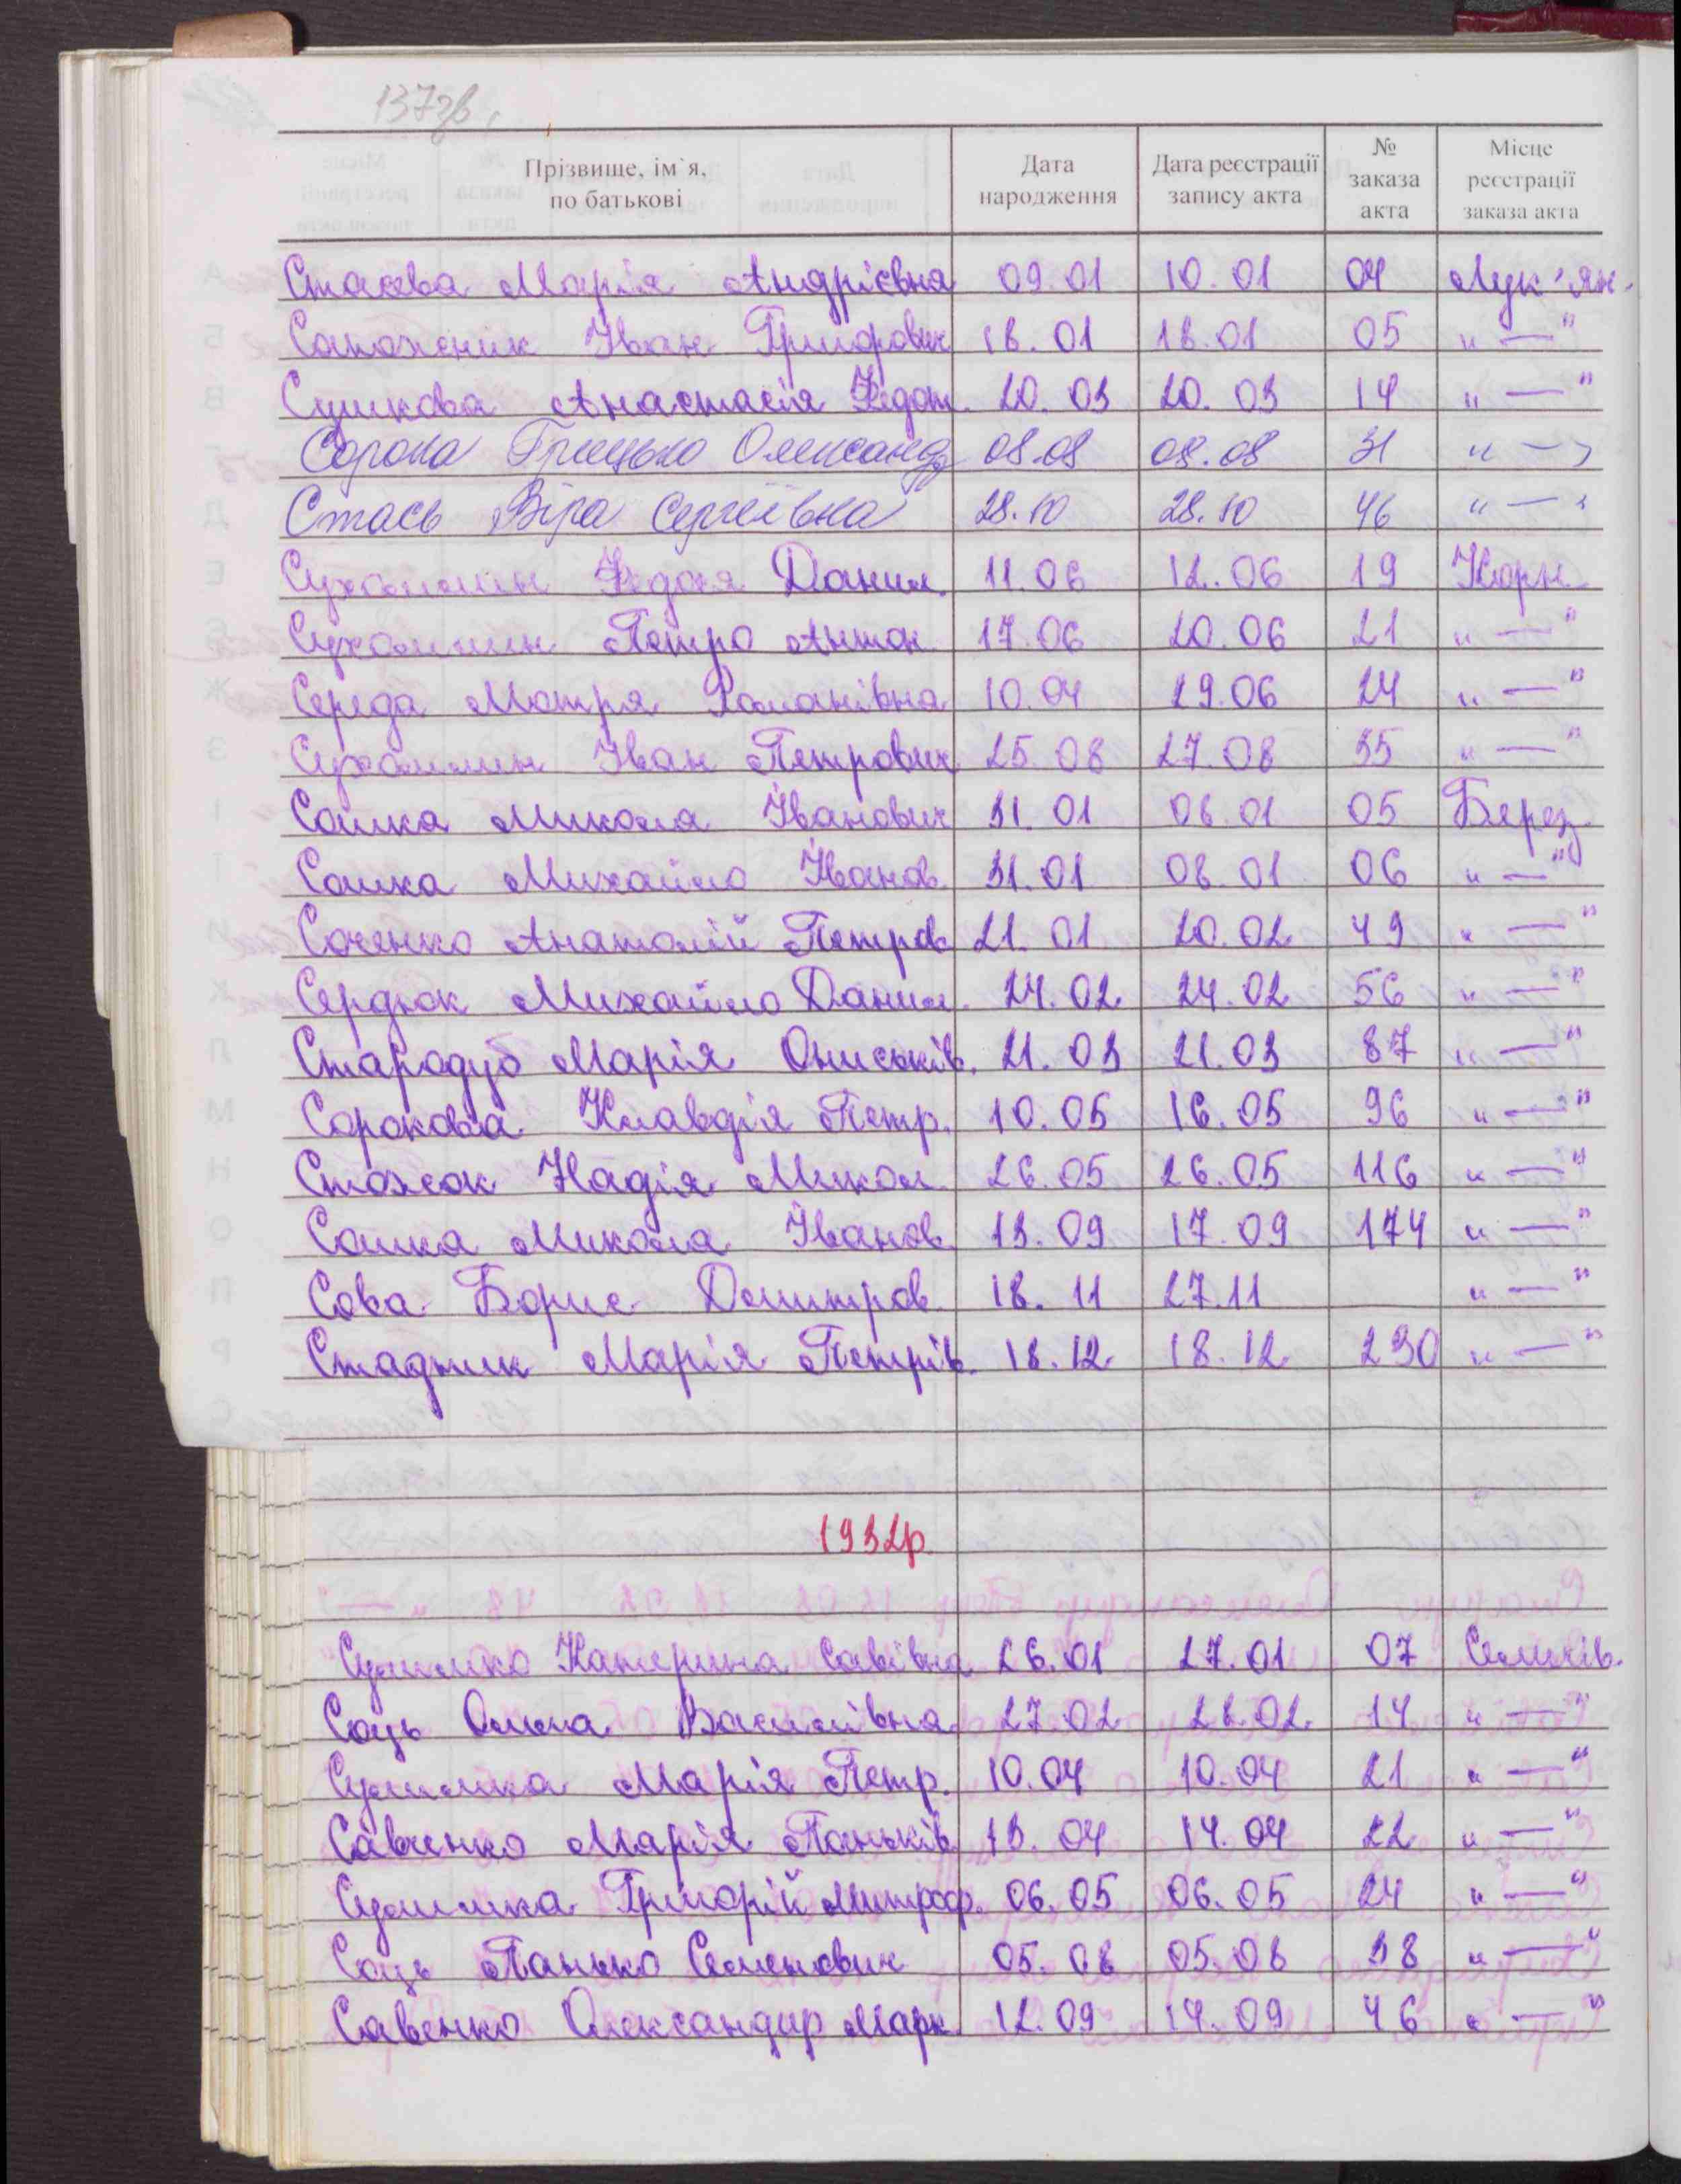 137зв.
Прізвище, ім`я, по батькові | Дата народження | Дата реєстрації запису акта | № заказа акта | Місце реєстрації заказа акта
Стасєва Марія Андрієвна 09.01 10.01 04 Лук'ян.
Сапоженик Іван Григорович 18.01 18.01 05 " — "
Сушкова Анастасія Федот. 20.03 20.03 14 " — "
Сорока Грицько Олександр 08.08 08.08 31 " — "
Стась Віра Сергеївна 28.10 28.10 46 " — "
Сухомлин Федося Данил. 11.06 12.06 19 Корн.
Сухомлин Петро Антон. 17.06 20.06 21 " — "
Середа Мотря Романівна 10.04 29.06 24 " — "
Сухомлин Іван Петрович 25.08 27.08 35 " — "
Сошка Микола Іванович 31.01 08.01 05 Берез.
Сошка Михайло Іванов. 31.01 08.01 06 " — "
Соченко Анатолій Петров. 21.01 20.02 49 " — "
Сердюк Михайло Данил. 24.02 24.02 56 " — "
Стародуб Марія Ониськів. 21.03 21.03 87 " — "
Сорокова Клавдія Петр. 10.05 16.05 96 " — "
Стожок Надія Микол. 26.05 26.05 116 " — "
Сошка Микола Іванов. 13.09 17.09 174 " — "
Сова Борис Дмитров. 18.11 27.11 " — "
Стадник Марія Петрів. 18.12 18.12 230 " — "
1932р
Сулимко Катерина Савівна 26.01 27.01 07 Семків.
Соць Олена Василівна 27.02 28.02 14 " — "
Сулимка Марія Петр. 10.04 10.04 21 " — "
Савченко Марія Паньків 13.04 14.04 22 " — "
Сулимка Григорій Митроф. 06.05 06.05 24 " — "
Соць Панько Семенович 05.08 05.08 38 " — "
Савенко Олександир Марк. 12.09 14.09 46 " — "